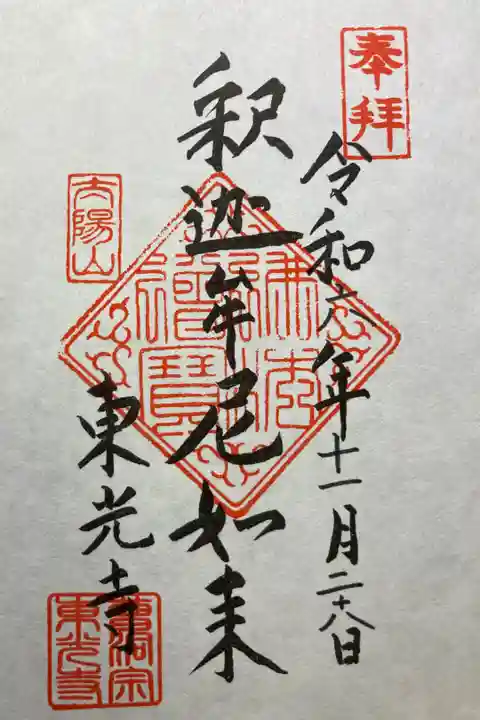 奉拝
令和六年十一月二十八日
釈迦牟尼如来
佛法僧寶
太陽山
東光寺
曹洞宗
東光寺